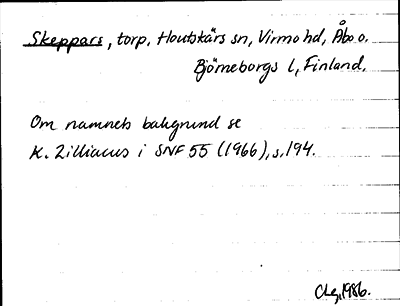 Skeppars, torp. Houtskärs sn, Virmo hd, Åbo o.
Björneborgs l, Finland.
Om namnets bakgrund se
K. Zilliacus i SNF 55 (1966), s. 194.
1986.